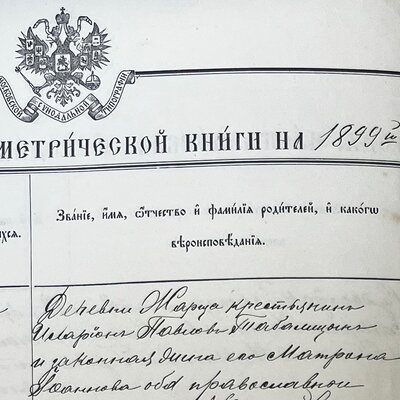 МОСКОВСКОЙ СѴНОДАЛЬНОЙ ТИПОГРАФІИ
МЕТРИ́ЧЕСКОЙ КНИ́ГИ НА 1899й
ХСѦ.
Зва́нїе, и҆́мѧ, ѻ҆́тчество и҆ фами́лїѧ роди́телей, и҆ како́гѡ
вѣроисповѣ́данїѧ.
Деревни Жарца крестьянинъ
Иларіонъ Павловъ Табалицынъ
и законная жена его Матрона
Іоаннова оба православной